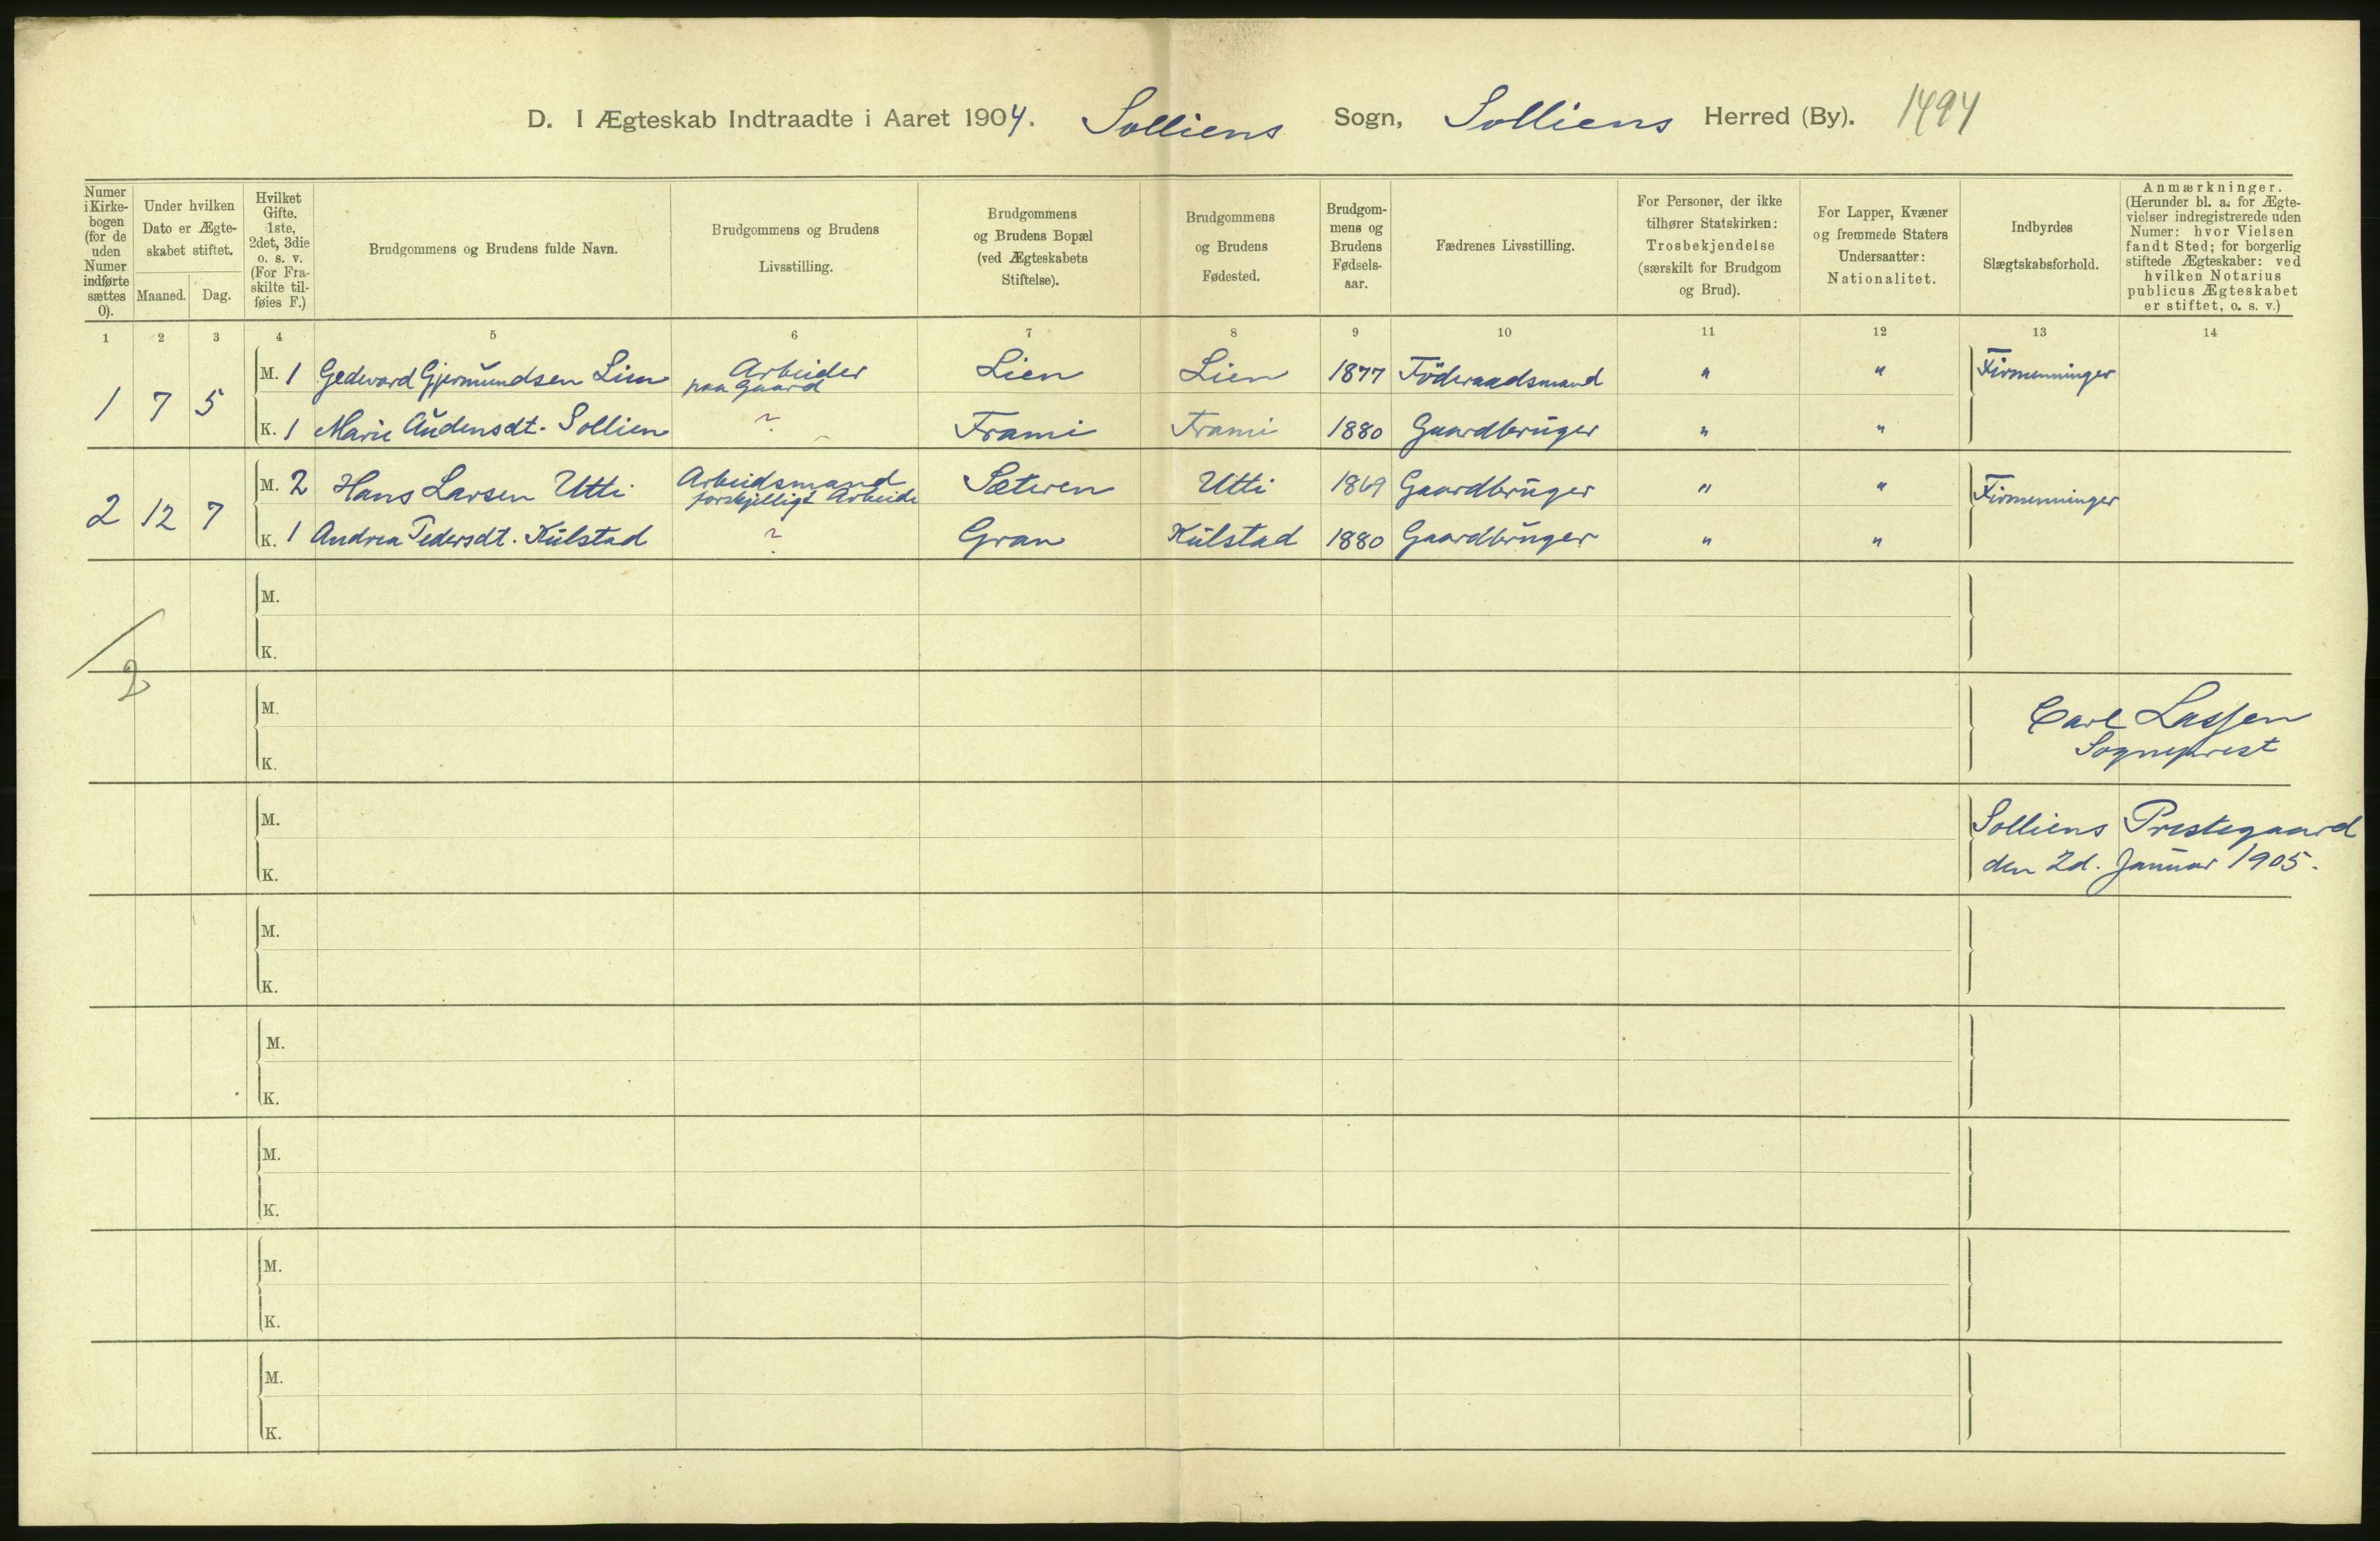 D. I Ægteskab Indtraadte i Aaret 1904. Solliens Sogn, Solliens Herred (By). 1494
Numer i Kirke-bogen (for de uden Numer indførte sættes 0).
Under hvilken Dato er Ægte-skabet stiftet.
Maaned. Dag.
Hvilket Gifte. 1ste, 2det, 3die o. s. v. (For Fra-skilte til-føies F.)
Brudgommens og Brudens fulde Navn.
Brudgommens og Brudens Livsstilling.
Brudgommens og Brudens Bopæl (ved Ægteskabets Stiftelse).
Brudgommens og Brudens Fødested.
Brudgom-mens og Brudens Fødsels-aar.
Fædrenes Livsstilling.
For Personer, der ikke tilhører Statskirken: Trosbekjendelse (særskilt for Brudgom og Brud).
For Lapper, Kvæner og fremmede Staters Undersaatter: Nationalitet.
Indbyrdes Slægtskabsforhold.
Anmærkninger. (Herunder bl. a. for Ægte-vielser indregistrerede uden Numer: hvor Vielsen fandt Sted; for borgerlig stiftede Ægteskaber: ved hvilken Notarius publicus Ægteskabet er stiftet, o. s. v.)
1 2 3 4 5 6 7 8 9 10 11 12 13 14
1 7 5
M. 1 Gedevard Gjermundsen Lien Arbeider paa Gaard Lien Lien 1877 Föderaadsmand " " Firmenninger
K. 1 Marie Audensdt. Sollien ? Frami Frami 1880 Gaardbruger " "
2 12 7
M. 2 Hans Larsen Utti Arbeidsmand forskjelligt Arbeide Sæteren Utti 1869 Gaardbruger " " Firmenninger
K. 1 Andrea Pedersdt. Kulstad ? Gran Kulstad 1880 Gaardbruger " "
M.
K.
2
M.
Carl Lassen
Sogneprest
K.
M.
Solliens Prestegaard
K.
den 2d. Januar 1905.
M.
K.
M.
K.
M.
K.
M.
K.
M.
K.